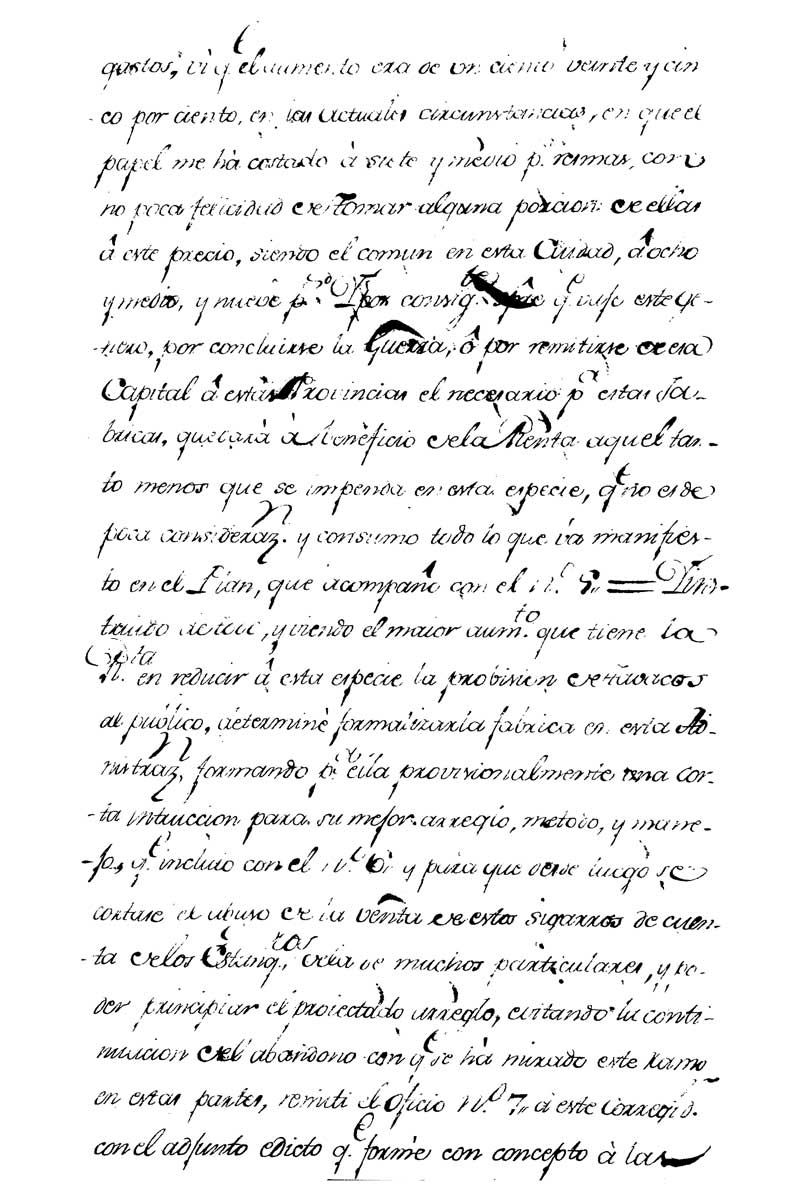 gastos, vi q.e el aumento era de un ciento veinte y cin
co por ciento, en las actuales circunstancias, en que el
papel me ha costado à siete y mèdio p.s resmas, con
no poca felicidad de tomar alguna porcion de ellas
â este precio, siendo el comun en esta Ciudad, â ocho
y medio, y nueve p.s Y por consig.te q.e vase este ge-
nero, por concluirse la Guerra, ô por remitirse de esa
Capital â estas Provincias el necesario p.a estas Fa-
bricas, quedará à beneficio de la Renta aquel tan-
to menos que se impenda en esta especie, q.e no es de
poca consideraz.n y consumo todo lo que vá manifies-
to en el Plan, que acompaño con el N.o 5,, = Yns-
truido de todo, y viendo el maior aum.to que tiene la
R.ta en reducir â esta especie la probision de tavacos
al público, determinè formalizar la fabrica en esta Ad-
nistraz.n formando p.a ella provisionalmente una cor-
ta intruccion para su mejor arreglo, metodo, y mane-
jo, q.e incluio con el N.o 6,, y para que desde luego se
cortase el abuso de la venta de estos sigarros de cuen-
ta de los Estanq.ros, dela de muchos particulares, y po-
der principiar el proiectado arreglo, evitando la conti-
nuacion del abandono con q.e se há mirado este Ramo
en estas partes, remiti el Oficio N.o 7,, á este Corregid.r
con el adjunto edicto q.e formè con concepto à las